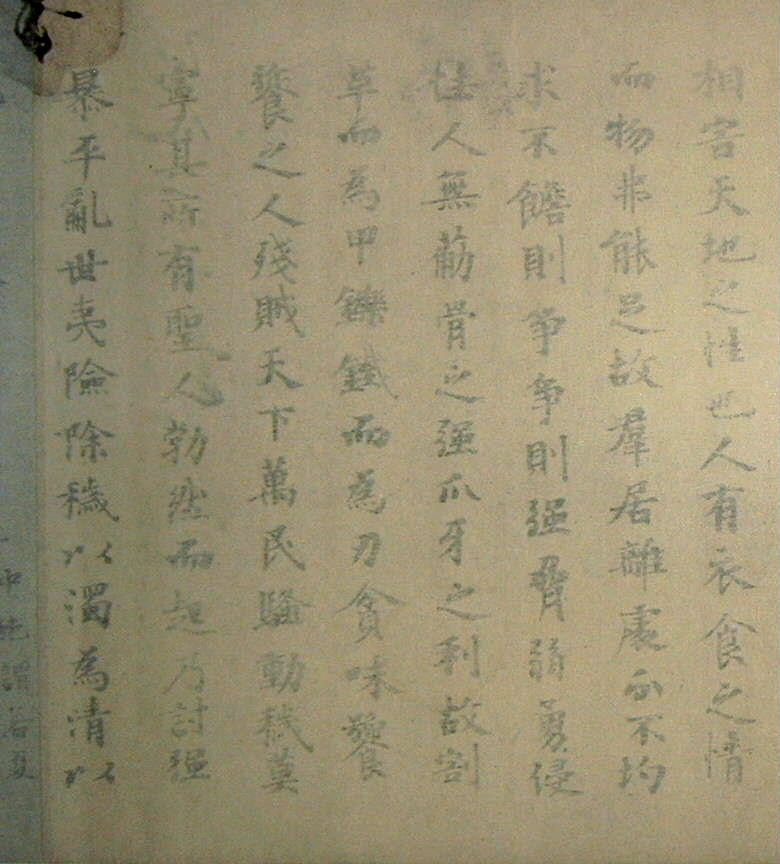 相害天地之性也人有衣食之情
而物非能足故羣居離處分不均
求不贍則争争則强脅弱勇侵
怯人無筋骨之强爪牙之利故割
革而為甲鑠鐵而為刃貪味饕
餮之人殘賊天下萬民騷動莫
寧其所有聖人勃然而起乃討强
暴平亂世夷險除穢以濁為清以
中絶謂若夏